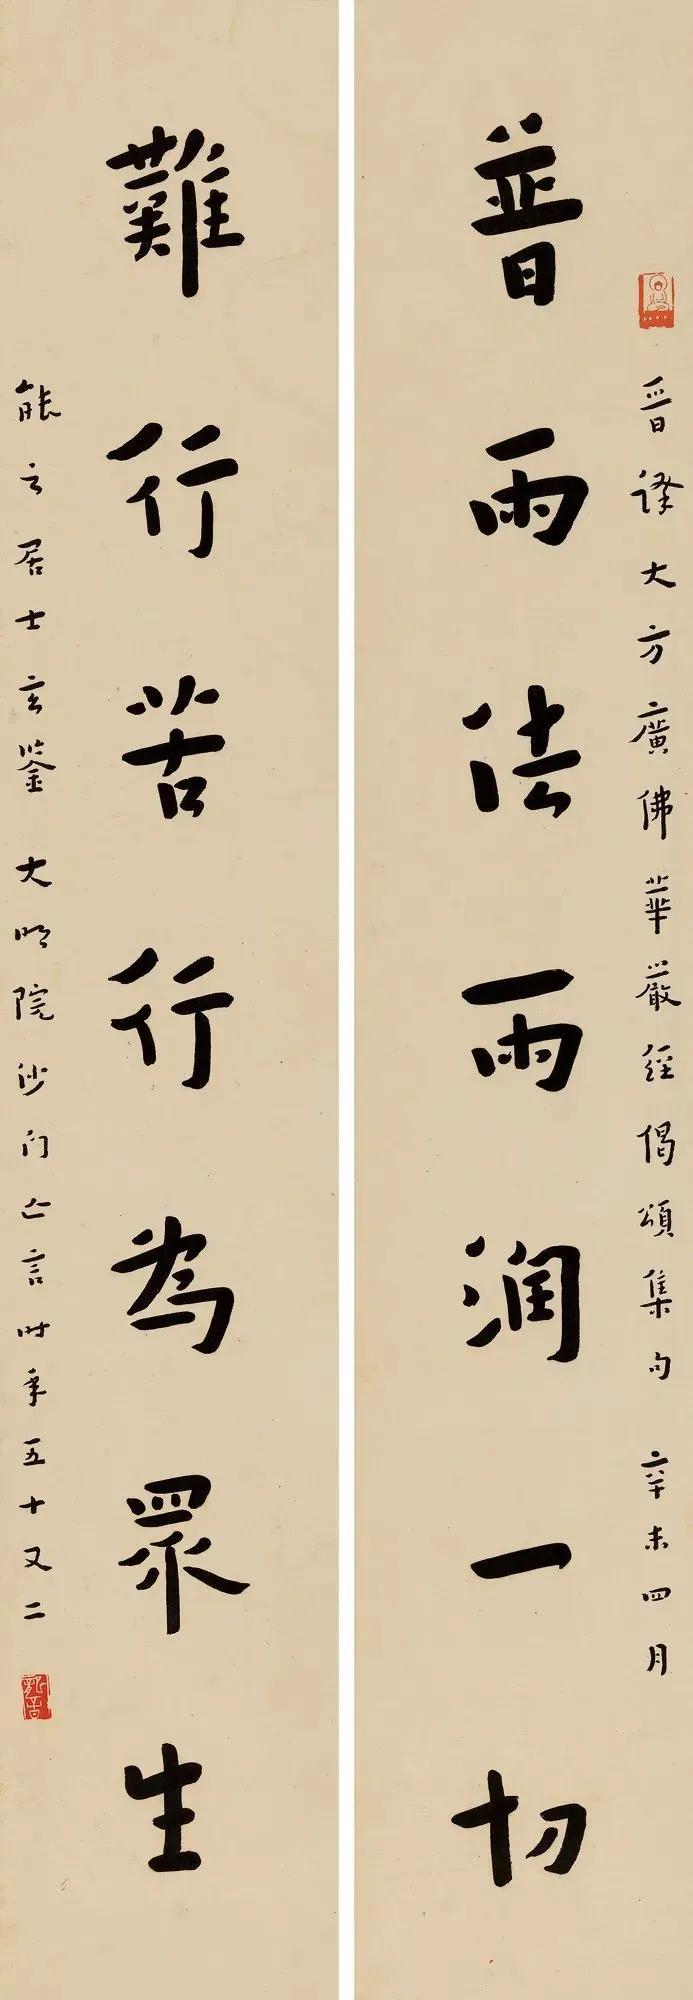 晉譯大方廣佛華嚴經偈頌集句 辛未四月
普雨法雨潤一切
難行苦行為眾生
居士玄鑒 大明院沙門亡言時年五十又二